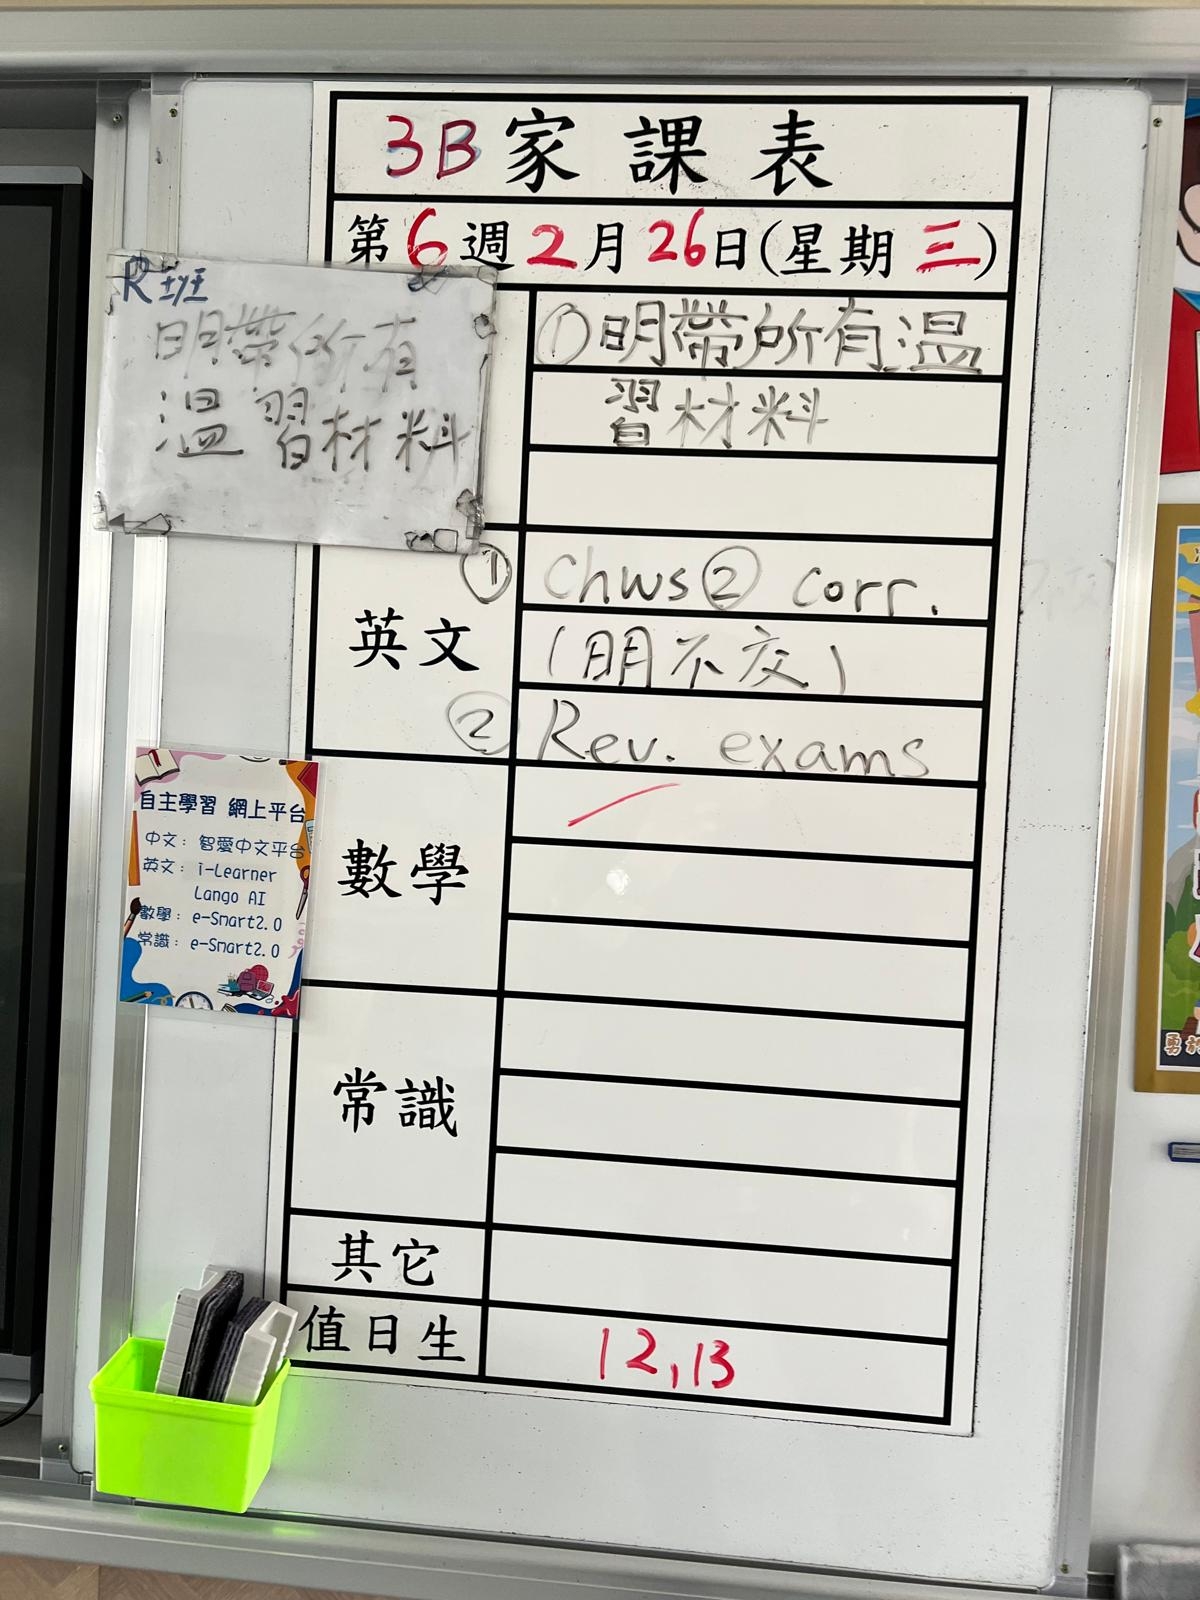 3B家課表
第6週2月26日(星期三)
R班
明帶所有
温習材料
①明帶所有温
習材料
英文
① Chws② corr.
(明不交)
② Rev. exams
數學
自主學習 網上平台
中文：智愛中文平台
英文：i-Learner
Lango AI
數學：e-Smart2.0
常識：e-Smart2.0
常識
其它
值日生
12,13